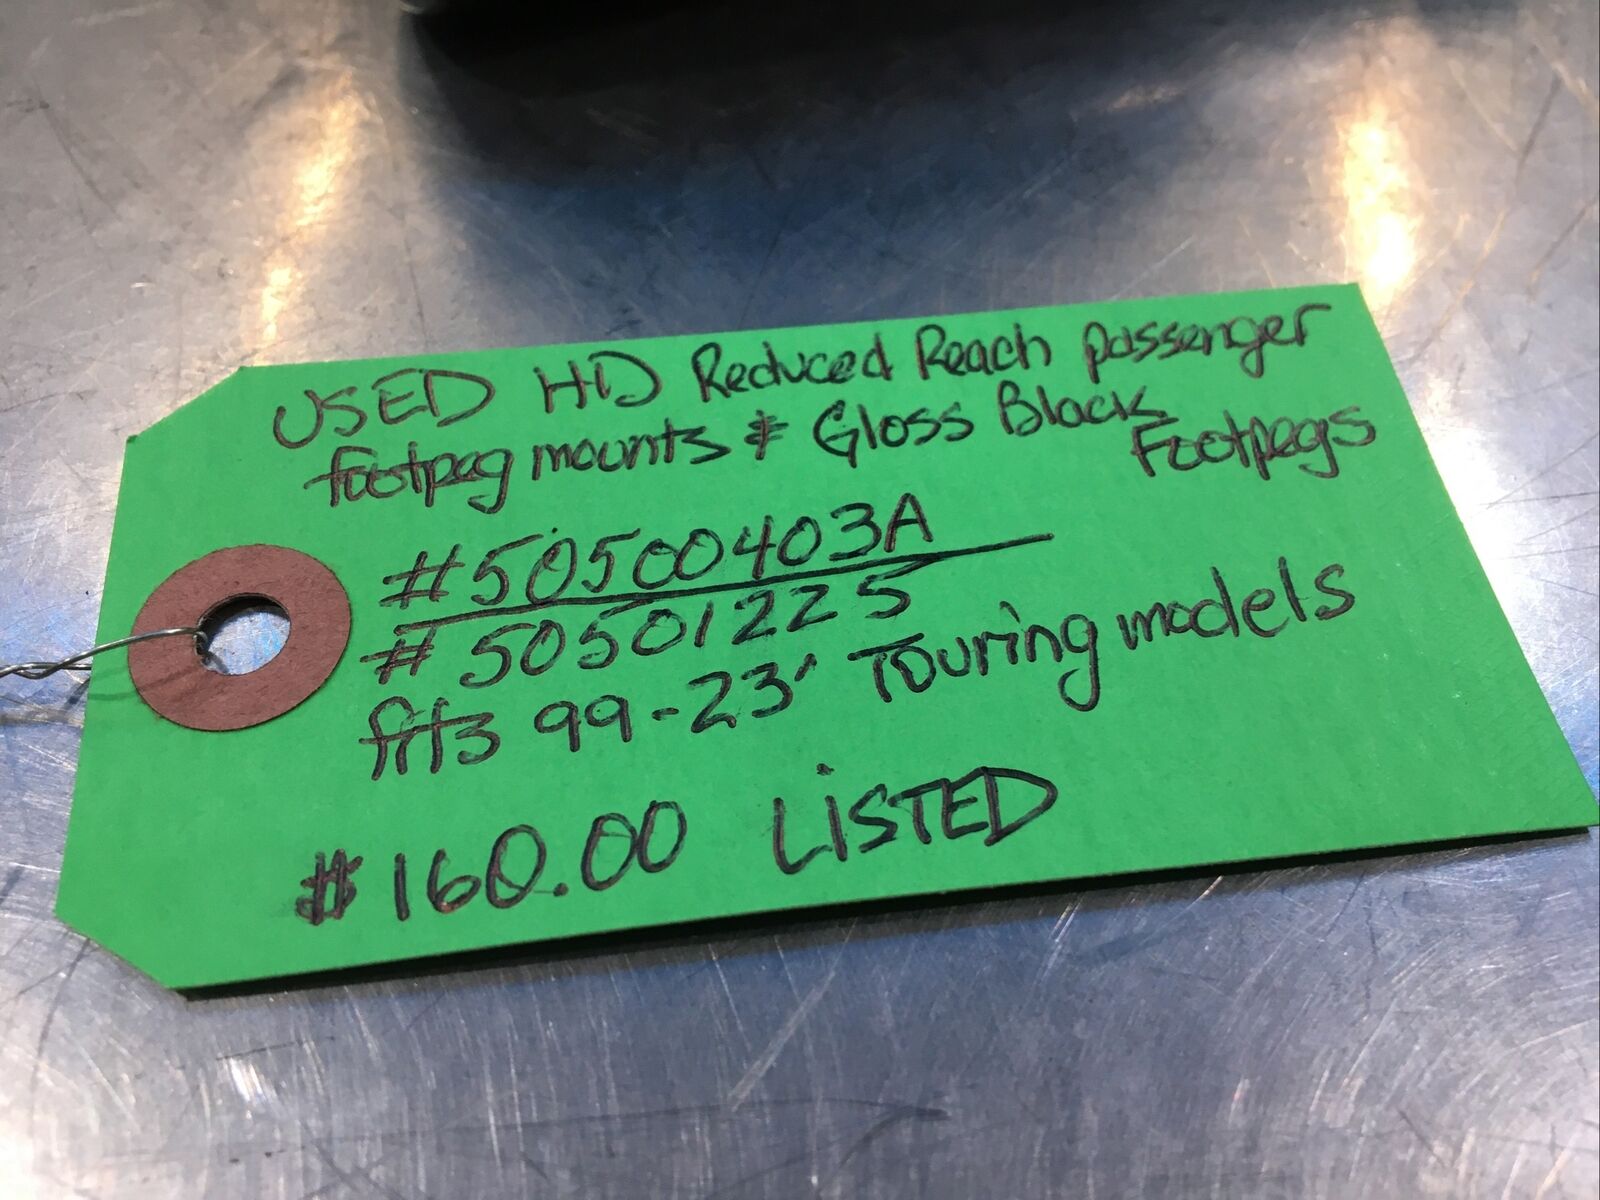 USED HD Reduced Reach passenger
footpeg mounts & Gloss Black Footpegs
#50500403A
#50501225
fits 99-23' Touring models
$160.00 LiSTED